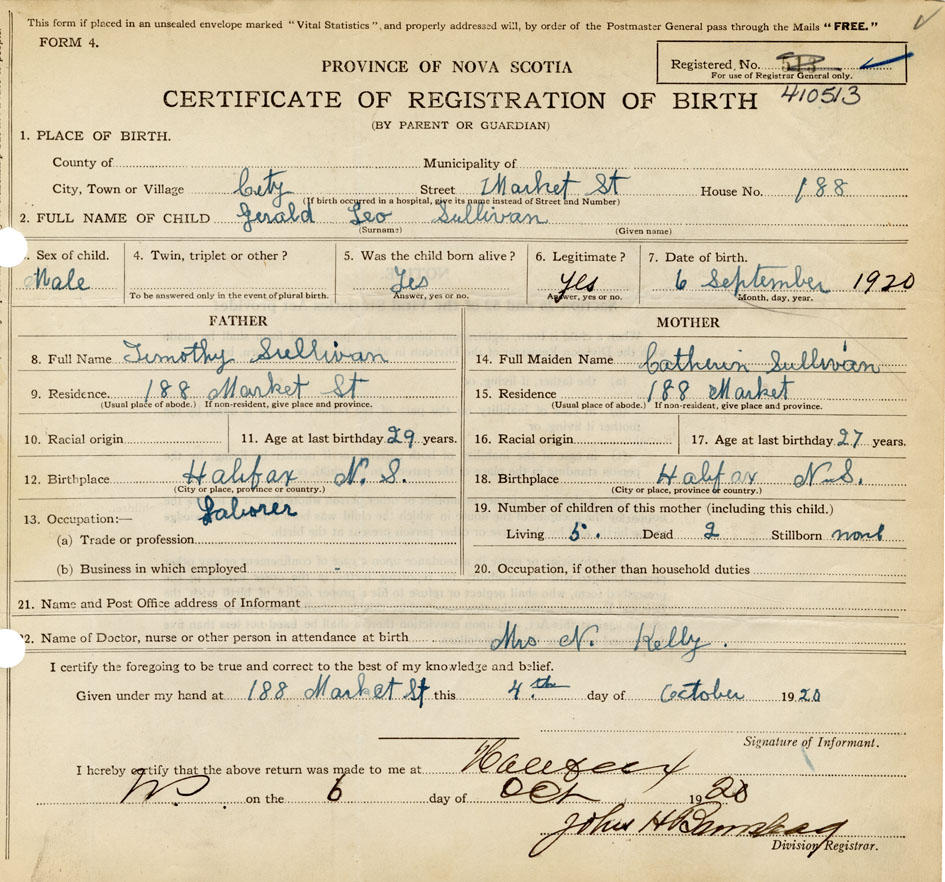 This form if placed in an unsealed envelope marked "Vital Statistics", and properly addressed will, by order of the Postmaster General pass through the Mails "FREE."
FORM 4.
Registered, No.
For use of Registrar General only.
410513
PROVINCE OF NOVA SCOTIA
CERTIFICATE OF REGISTRATION OF BIRTH
(BY PARENT OR GUARDIAN)
1. PLACE OF BIRTH.
County of Municipality of
City, Town or Village City Street Market St House No. 188
(If birth occurred in a hospital, give its name instead of Street and Number)
2. FULL NAME OF CHILD Gerald Leo Sullivan
(Surname) (Given name)
. Sex of child. 4. Twin, triplet or other? 5. Was the child born alive? 6. Legitimate? 7. Date of birth.
Male Yes Yes 6 September 1920
To be answered only in the event of plural birth. Answer, yes or no. Answer, yes or no. Month, day, year.
FATHER
8. Full Name Timothy Sullivan
9. Residence 188 Market St
(Usual place of abode.) If non-resident, give place and province.
10. Racial origin 11. Age at last birthday 29 years.
12. Birthplace Halifax N.S.
(City or place, province or country.)
13. Occupation:— Laborer
(a) Trade or profession
(b) Business in which employed -
MOTHER
14. Full Maiden Name Catherin Sullivan
15. Residence 188 Market
(Usual place of abode.) If non-resident, give place and province.
16. Racial origin 17. Age at last birthday 27 years.
18. Birthplace Halifax N.S.
(City or place, province or country.)
19. Number of children of this mother (including this child.)
Living 5. Dead 2 Stillborn none
20. Occupation, if other than household duties
21. Name and Post Office address of Informant
22. Name of Doctor, nurse or other person in attendance at birth Mrs N. Kelly.
I certify the foregoing to be true and correct to the best of my knowledge and belief.
Given under my hand at 188 Market St this 4th day of October 1920
Signature of Informant.
I hereby certify that the above return was made to me at Halifax
NS on the 6 day of Oct 1920
John H
Division Registrar.